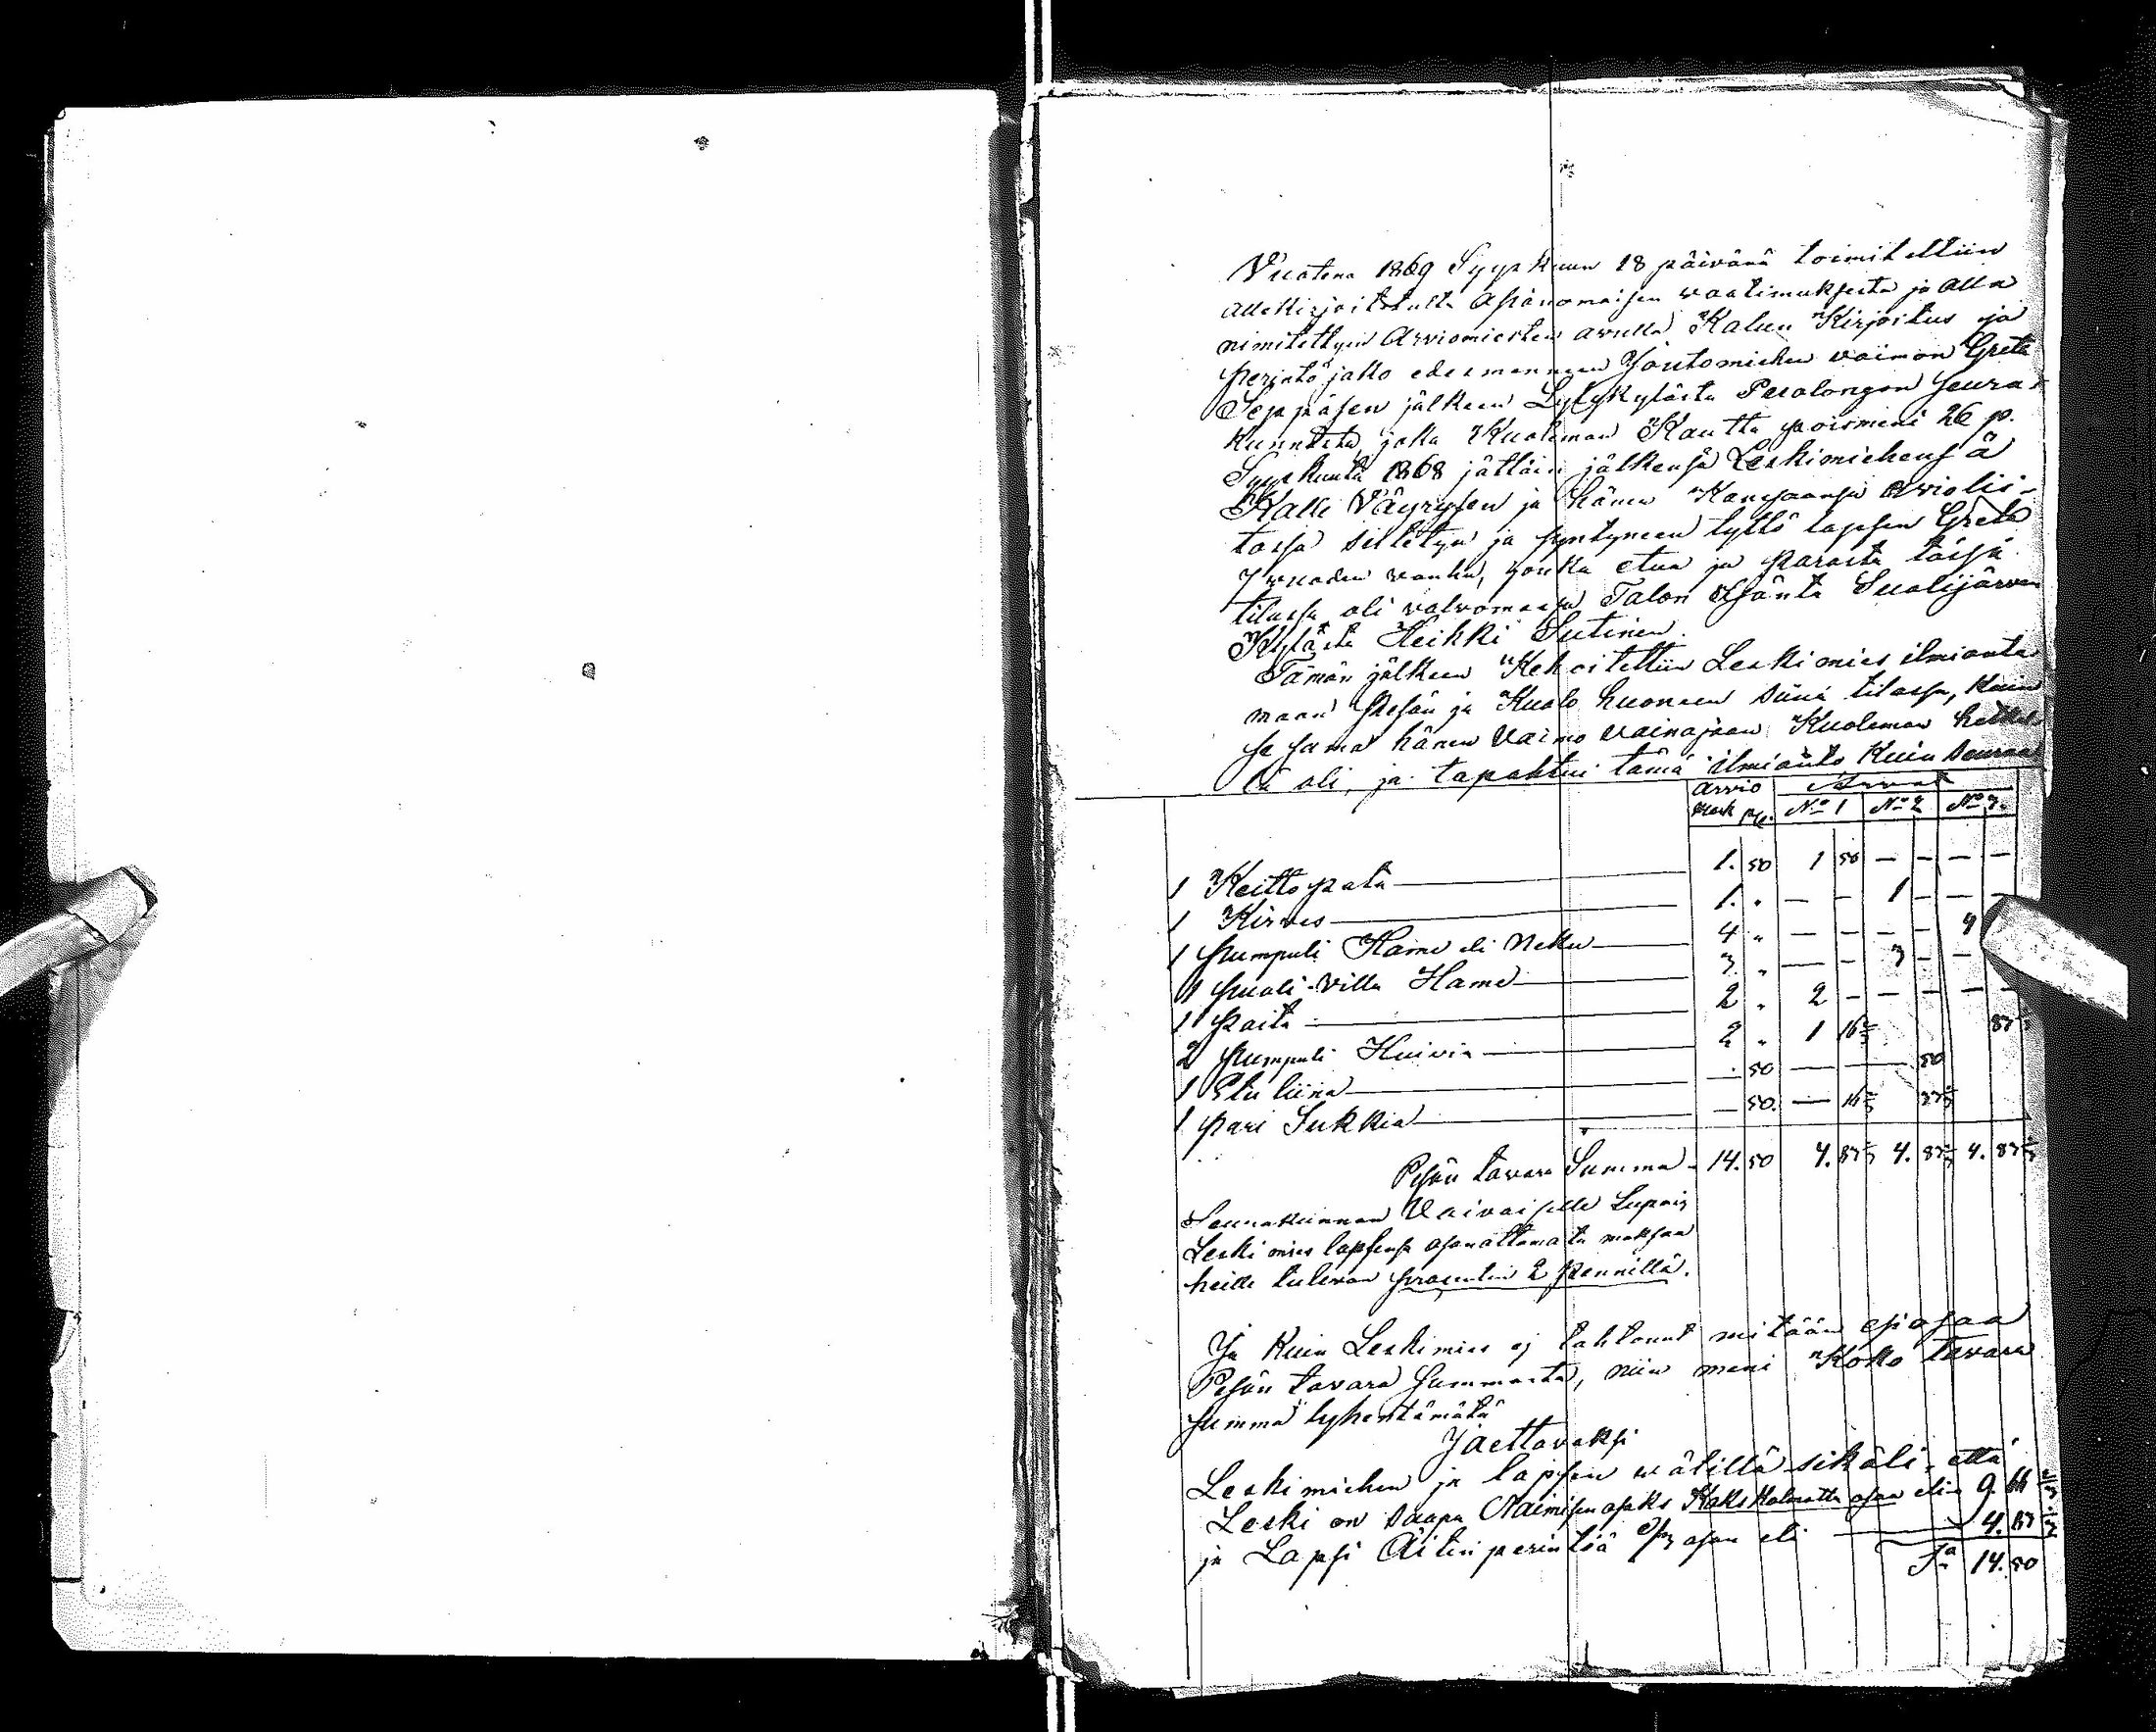 Vuotena 1869 Syyskuun 18 päivänä toimitettiin
allekirjoitetulta Asianomaisen waatimuksesta ja alla
nimitettyin Arviomiesten avulla Kalun Kirjoitus ja
perintö jako edesmennen Joutomiehen vaimon Greta
Seppäsen jälkeen Lylykylästä Puolongan Seura-
kunnasta, joka Kuoleman Kautta poismeni 26 p.
Syyskuuta 1868 jättäin jälkeensä Leskimiehensä
Kalle Väyrysen ja hänen Kanssaansa Aviolii-
tossa siitetyn ja syntyneen tyttö lapsen Greta
7 vuoden vanha, jonka etua ja parasta täisä
tilassa oli valvomassa Talon Isäntä Suolijärven
Kylästä Heikki Sutinen.
Tämän jälkeen Kehoitettiin Leskimies ilmianta
maan Pesän ja Kuolo huoneen siinä tilassa, kuin
se sama hänen Vaimo vainajaan Kuoleman hetkel-
lä oli, ja tapahtui tämä ilmianto Kuin Seuraa
Arvio Arvat
Mark p. No 1 No 2 No 3.
1 Keittopata 1. 50 1 50 — — — —
1 Kirves 1. " — — 1 — — —
1 Pumpuli Hame eli Nekku 4 " — — — — 4
1 Puoli-Villa Hame 3 " — — 3 — —
1 Paita 2 " 2 — — — — —
2 Pumpuli Huivia 2 " 1 16 2/3 83 1/3
1 Esiliina — 50 — — 50
1 Pari Sukkia — 50. — 16 2/3 33 1/3
Pesän tavara Summa 14. 50 4. 83 1/3 4. 83 1/3 4. 83 1/3
Seurakunnan Vaivaisille Lupais
Leskimies lapsensa osanottamata maksaa
heille tulevan prosentin 2 pennillä.
Ja Kuin Leskimies ej tahtonut mitään esiosaa
Pesän tavara Summasta, niin meni Koko tavara
Summa lyhentämätä
Jaettavaksi
Leskimiehen ja lapsen wälillä sikäli, että
Leski on saapa Naimisen osaks Kaks Kolmatta osaa eli 9. 66 2/3
ja Lapsi Äitin perintöä 1/3 osan eli 4. 83 1/3
Sa 14. 50